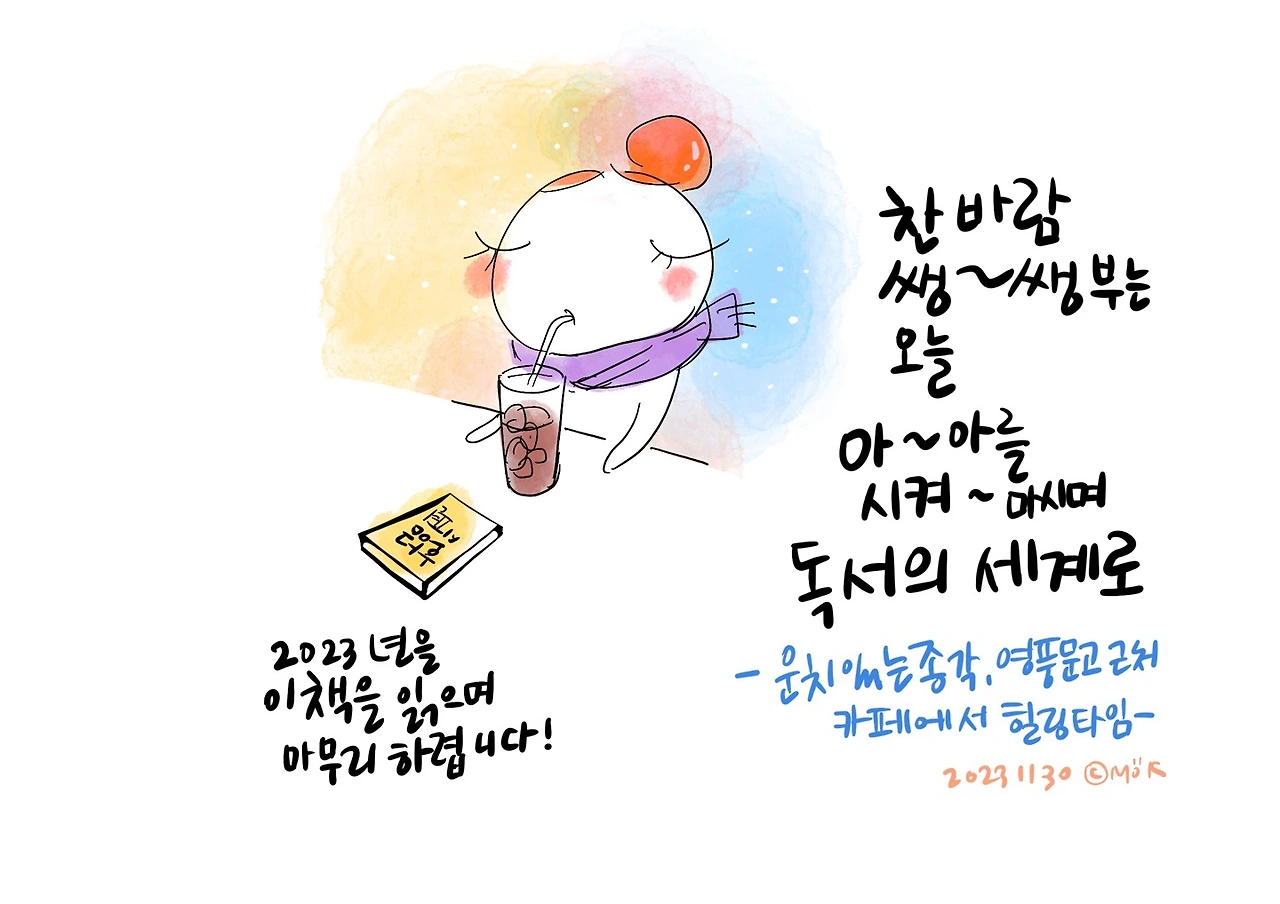 찬 바람
쌩~쌩 부는
오늘
아~아를
시켜~마시며
독서의 세계로
2023년을
이 책을 읽으며
마무리 하렵니다!
- 운치 있는 종각, 영풍문고 근처
카페에서 힐링타임-
2023 11 30 ©MÖK